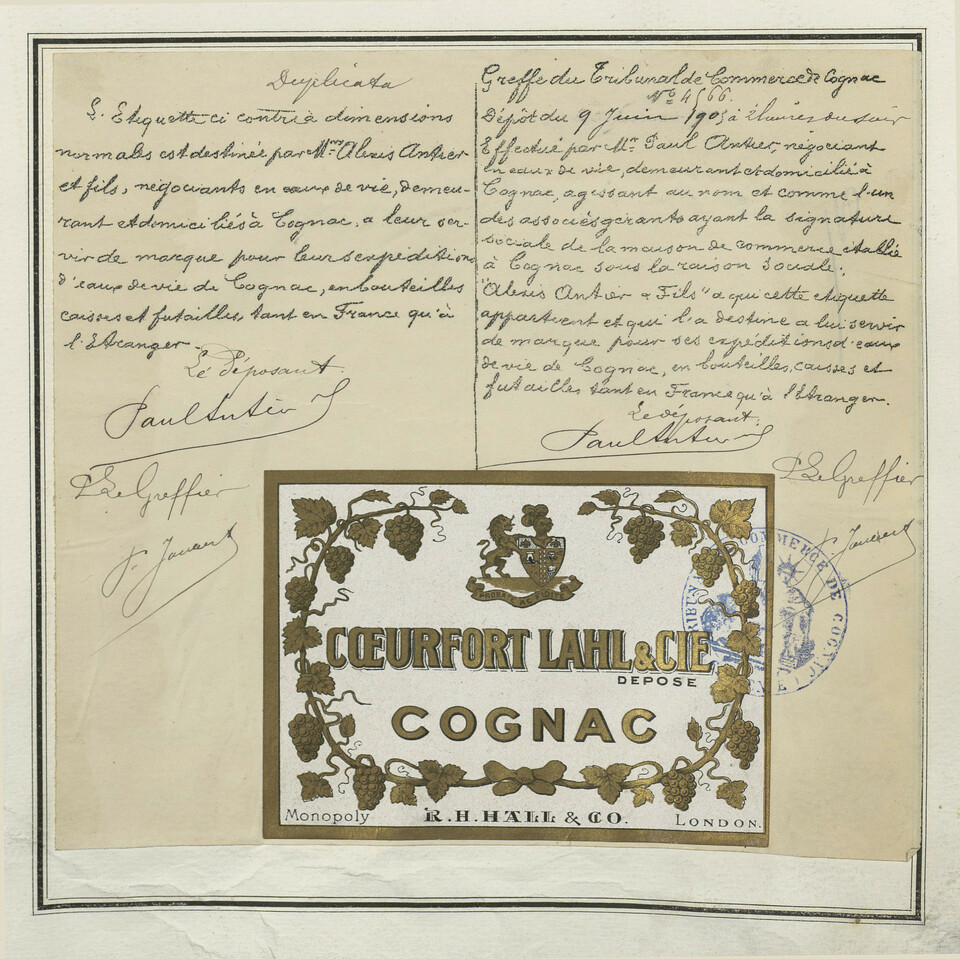 Duplicata
L'Etiquette ci contre à dimensions
normales est destinée par Mrs Alexis Antier
et fils, négociants en eaux de vie, demeu-
rant et domiciliés à Cognac, a leur ser-
vir de marque pour leurs expéditions
d'eaux de vie de Cognac, en bouteilles
caisses et futailles, tant en France qu'à
l'Etranger.
Le déposant.
Paul Antier
P. Le Greffier
Greffe du Tribunal de Commerce de Cognac
No 4566.
Dépôt du 9 Juin à heures du soir
Effectué par Mr. Paul Antier, négociant
en eaux de vie, demeurant et domicilié à
Cognac, agissant au nom et comme l'un
des associés gérants ayant la signature
sociale de la maison de commerce établie
à Cognac sous la raison sociale:
"Alexis Antier & Fils" a qui cette etiquette
appartient et qui l'a destine a lui servir
de marque pour ses expéditions d'eaux
de vie de Cognac, en bouteilles, caisses et
futailles tant en France qu'à l'Etranger.
Le déposant.
Paul Antier
P. Le Greffier
TRIBUNAL COMMERCE DE COGNAC
CŒURFORT LAHL & CIE
DEPOSE
COGNAC
Monopoly R.H. HALL & CO. LONDON.